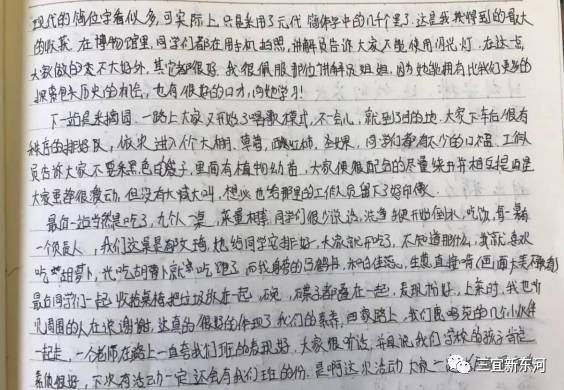 现代的简位字看似多,可实际上,只是采用了元代简体字中的几千个罢了。这是我我得到的最大
的收获。在博物馆里,同学们都在用手机拍照,讲解员告诉大家不能使用闪光灯。在这一点,
大家做的不太好外,其它都很好。我很佩服那位讲解员姐姐,因为她能拥有比我们更多的
探索包头历史的机会,也有很好的口才,向她学习!
下一站是采摘园。一路上大家又开始了唱歌模式,不一会儿,就到了目的地。大家下车后很有
秩序的排路队,依次进入个大棚,草莓,西红柿,圣女果,同学们都有不少的口福。工作人
员告诉大家不要乘黑色的袋子,里面有植物幼苗,大家便很配合的尽量绕开并相互提醒
大家虽都很激动,但没有大喊大叫,想必也给那里的工作人员留下了好印象。
最后一站当然是吃了,九个人一桌,菜量相等,同学们很少说话,洗净手便开始倒水,吃饭,每一桌有
一个负责人,我们这桌是郝文 ,她给同学安排好,大家就开吃了,不知道那什么,我就喜欢
吃胡萝卜,光吃胡萝卜就吃饱了,而我身旁的马鹤丹,和白佳 ,生葱直接啃
最后同学们一起收拾桌椅把垃圾放在一起,碗,碟子都叠在一起,是取粉好,上菜时,我也听
见周围的人在说谢谢,这真的很好的体现了我们的素养,回家路上,我们 的几个小伙伴
一起走,一个老师在路上一直夸我们班的表现好,大家很听话,并且说我们学校的孩子肯定
素质很好,下次有活动一定还会有我们班的份。是啊这次活动大家一
三宜新东河